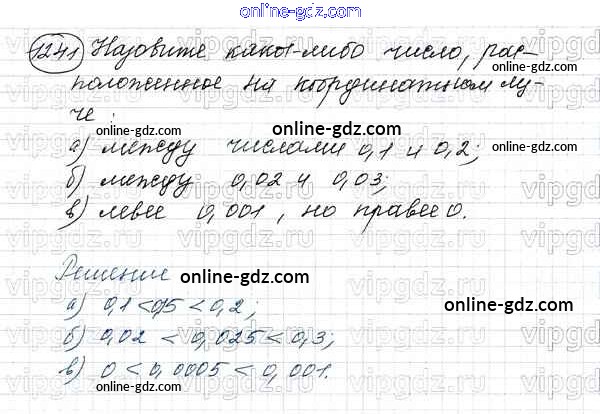 online-gdz.com
1241 Назовите какое-либо число, рас-
положенное на координатном лу-
че:
online-gdz.com
online-gdz.com
а) между числами 0,1 и 0,2;
online-gdz.com
б) между 0,02 и 0,03;
в) левее 0,001, но правее 0.
online-gdz.com
Решение
online-gdz.com
а) 0,1 < 0,15 < 0,2;
online-gdz.com
б) 0,02 < 0,025 < 0,3;
online-gdz.com
в) 0 < 0,0005 < 0,001.
online-gdz.com